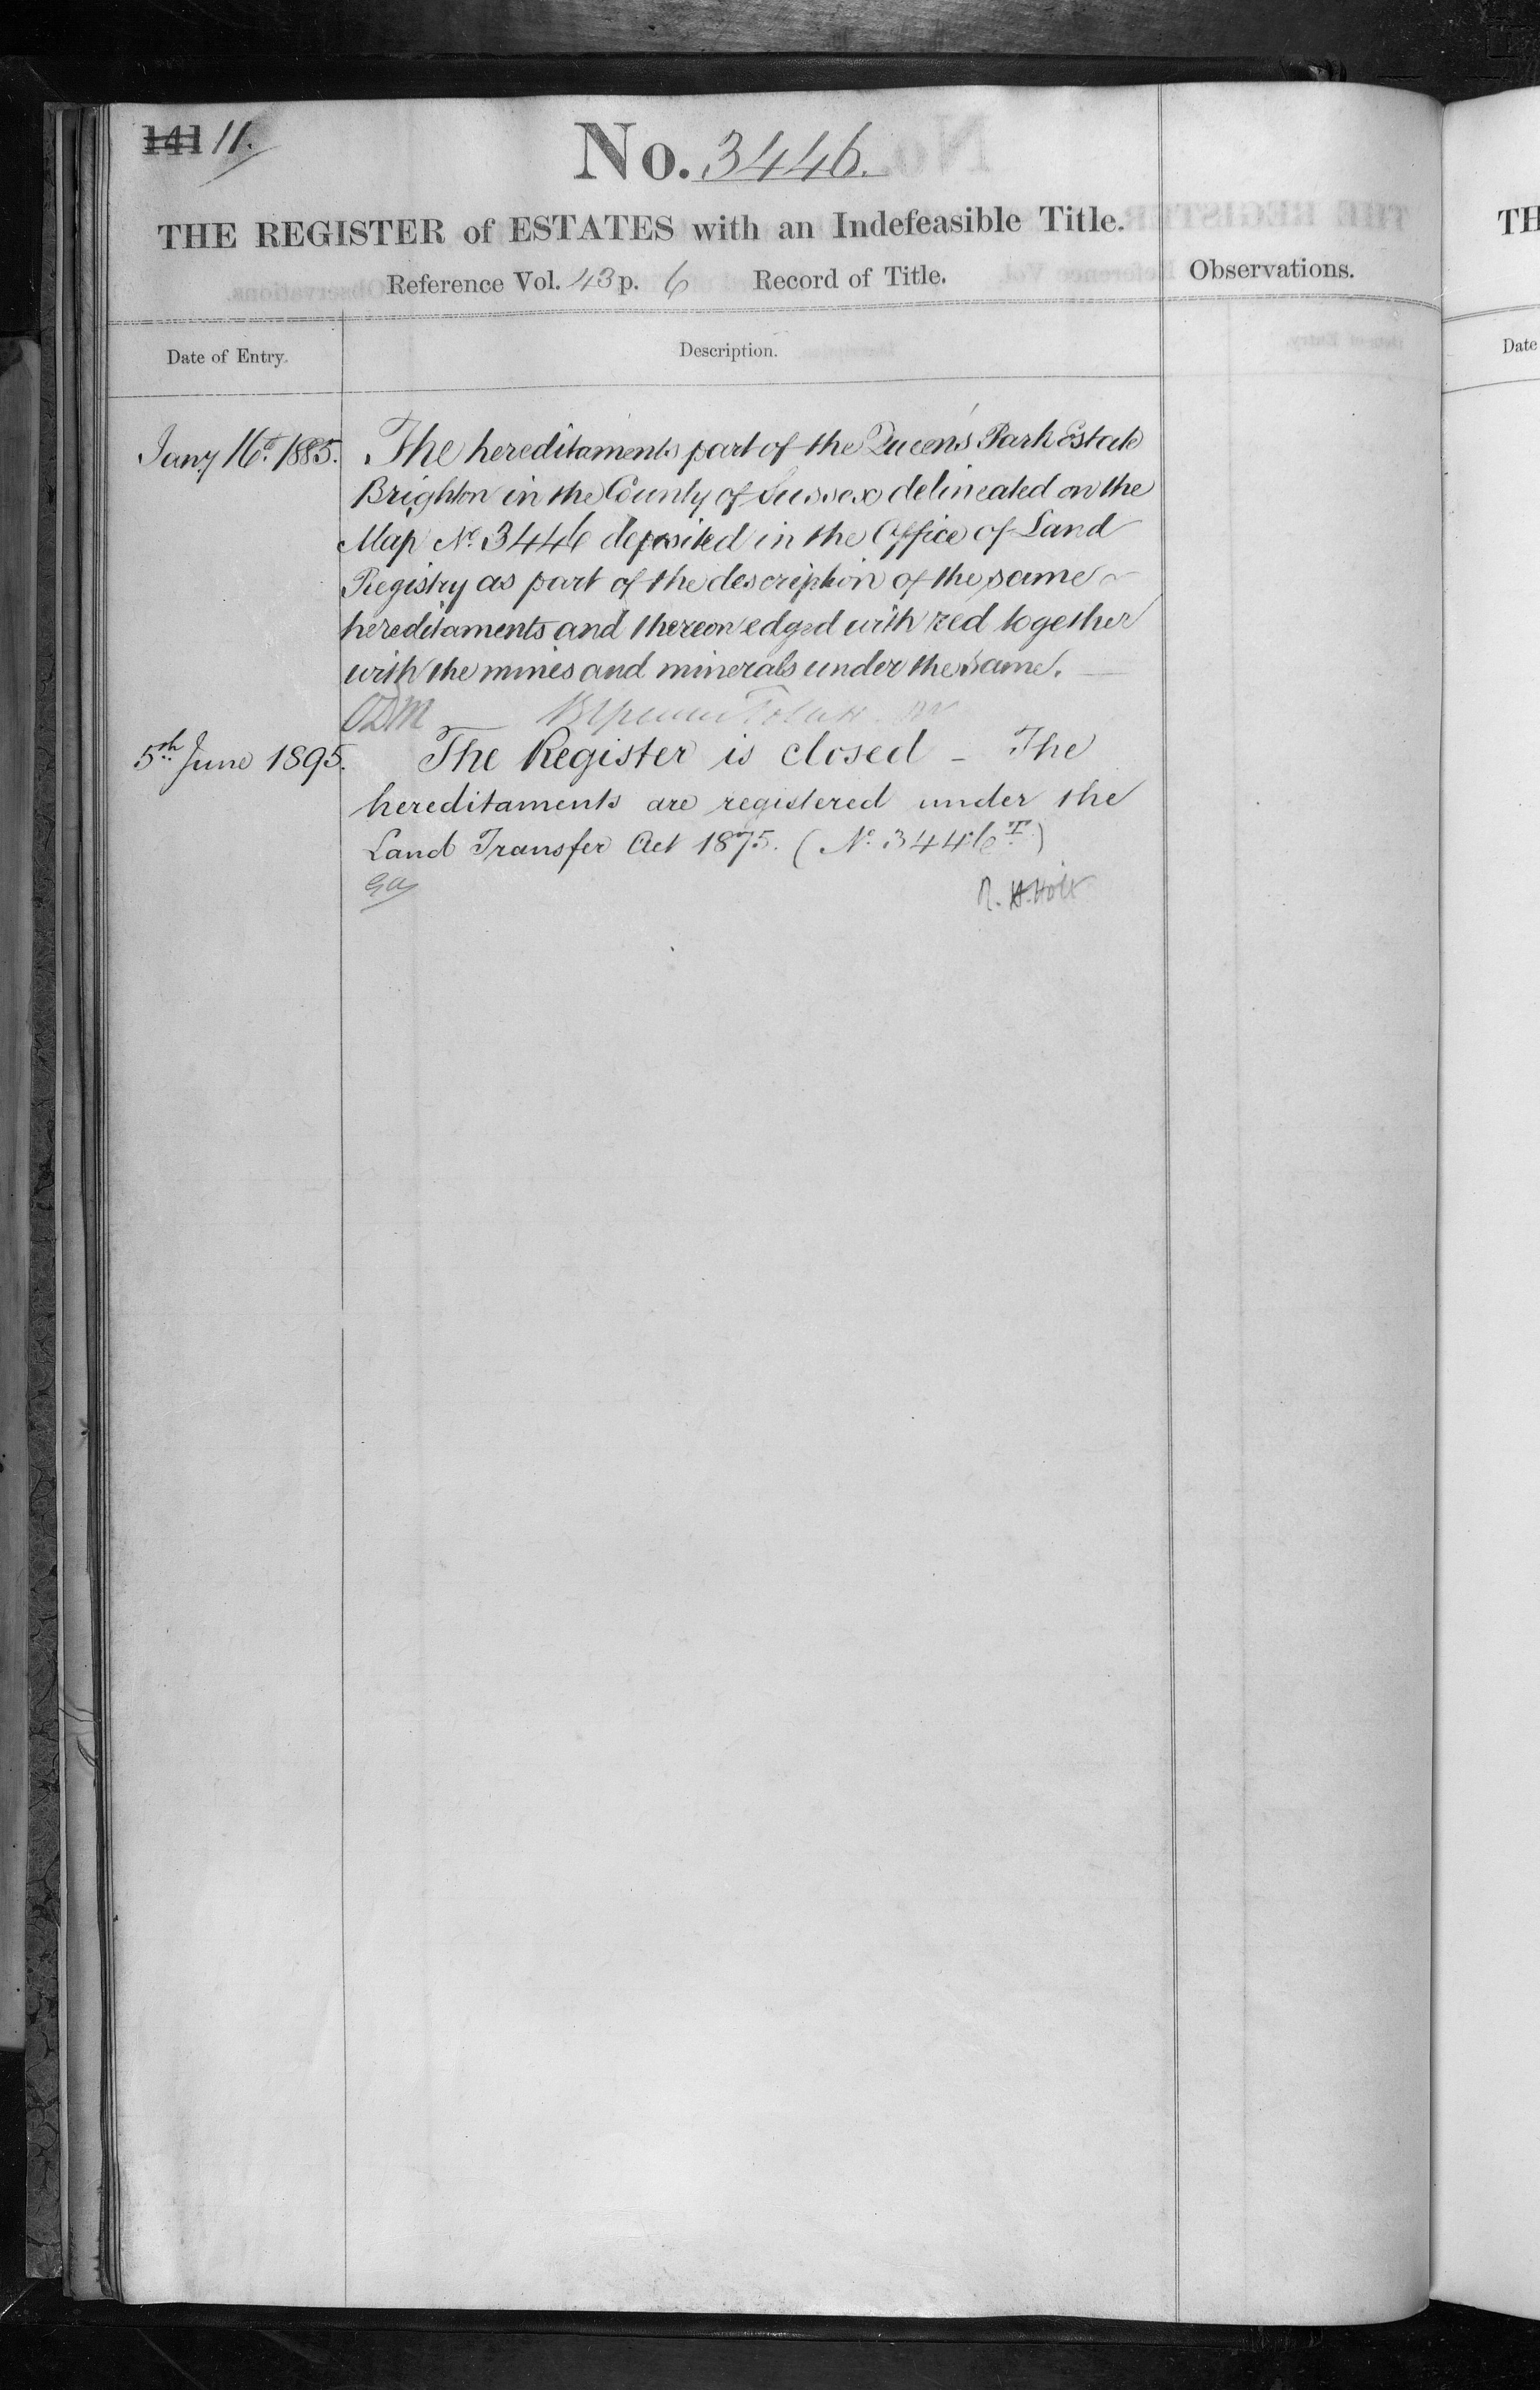 141 11.
No. 3446.
THE REGISTER of ESTATES with an Indefeasible Title.
Reference Vol. 43 p. 6 Record of Title.
Observations.
Date of Entry.
Description.
Jany 16th 1885.
The hereditaments part of the Queen's Park Estate
Brighton in the County of Sussex delineated on the
Map No. 3446 deposited in the Office of Land
Registry as part of the description of the same
hereditaments and thereon edged with red together
with the mines and minerals under the same.
5th June 1895.
The Register is closed - The
hereditaments are registered under the
Land Transfer Act 1875. (No. 3446 T.)
R. H. Holt
TH
Date